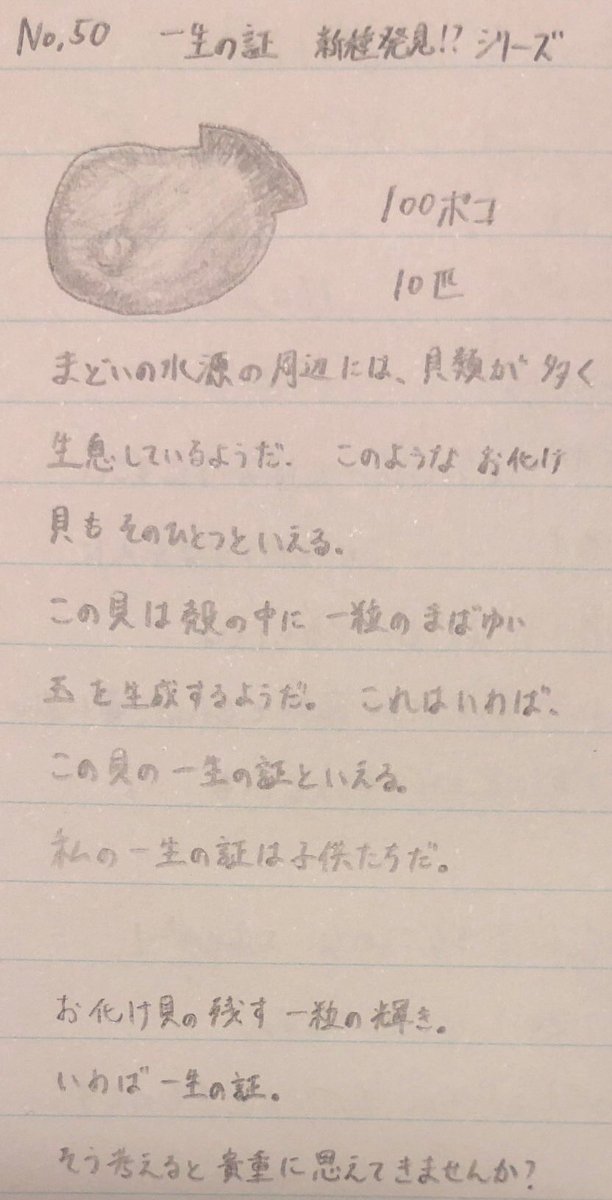 No.50 一生の証 新種発見!? シリーズ
100ポコ
10匹
まどいの水源の周辺には、貝類が多く
生息しているようだ。 このような お化け
貝も そのひとつといえる。
この貝は殻の中に 一粒のまばゆい
玉を生成するようだ。 これはいわば、
この貝の一生の証といえる。
私の一生の証は子供たちだ。
お化け貝の残す 一粒の輝き。
いわば一生の証。
そう考えると貴重に思えてきませんか?